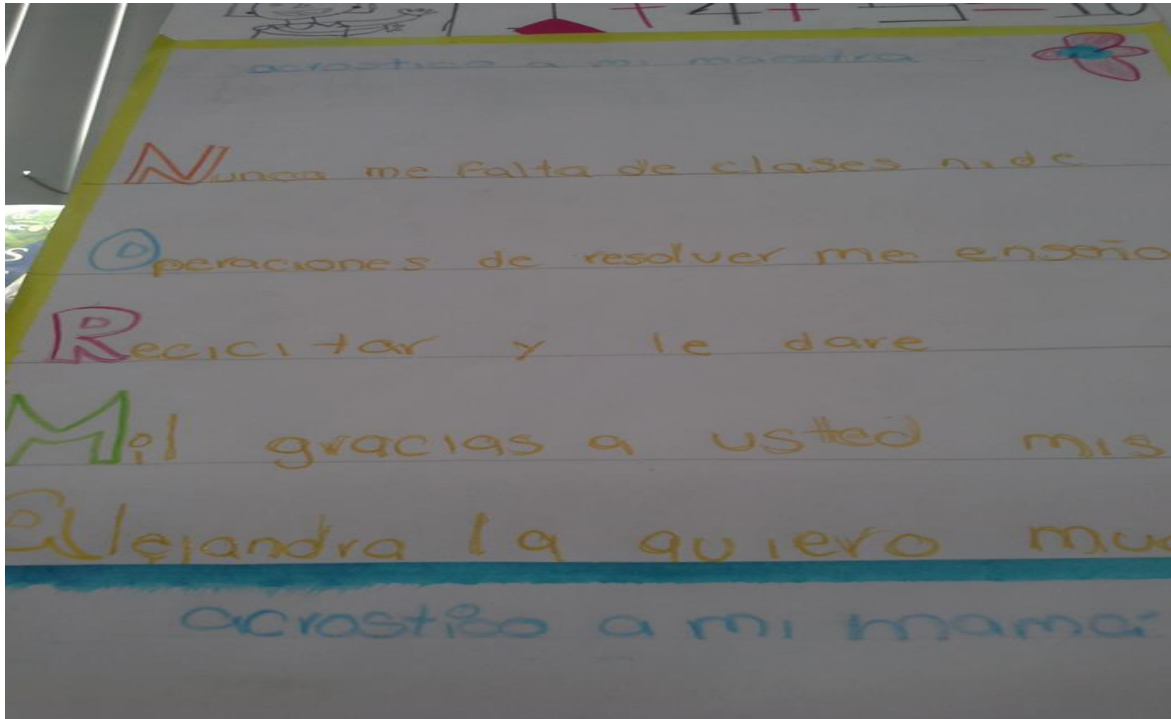 1 + 4 + 5 = 10
acrostico a mi maestra
Nunca me falta de clases ni de
Operaciones de resolver me enseño
Recicitar y le dare
Mil gracias a usted mis
Alejandra la quiero muc
acrostico a mi mamá